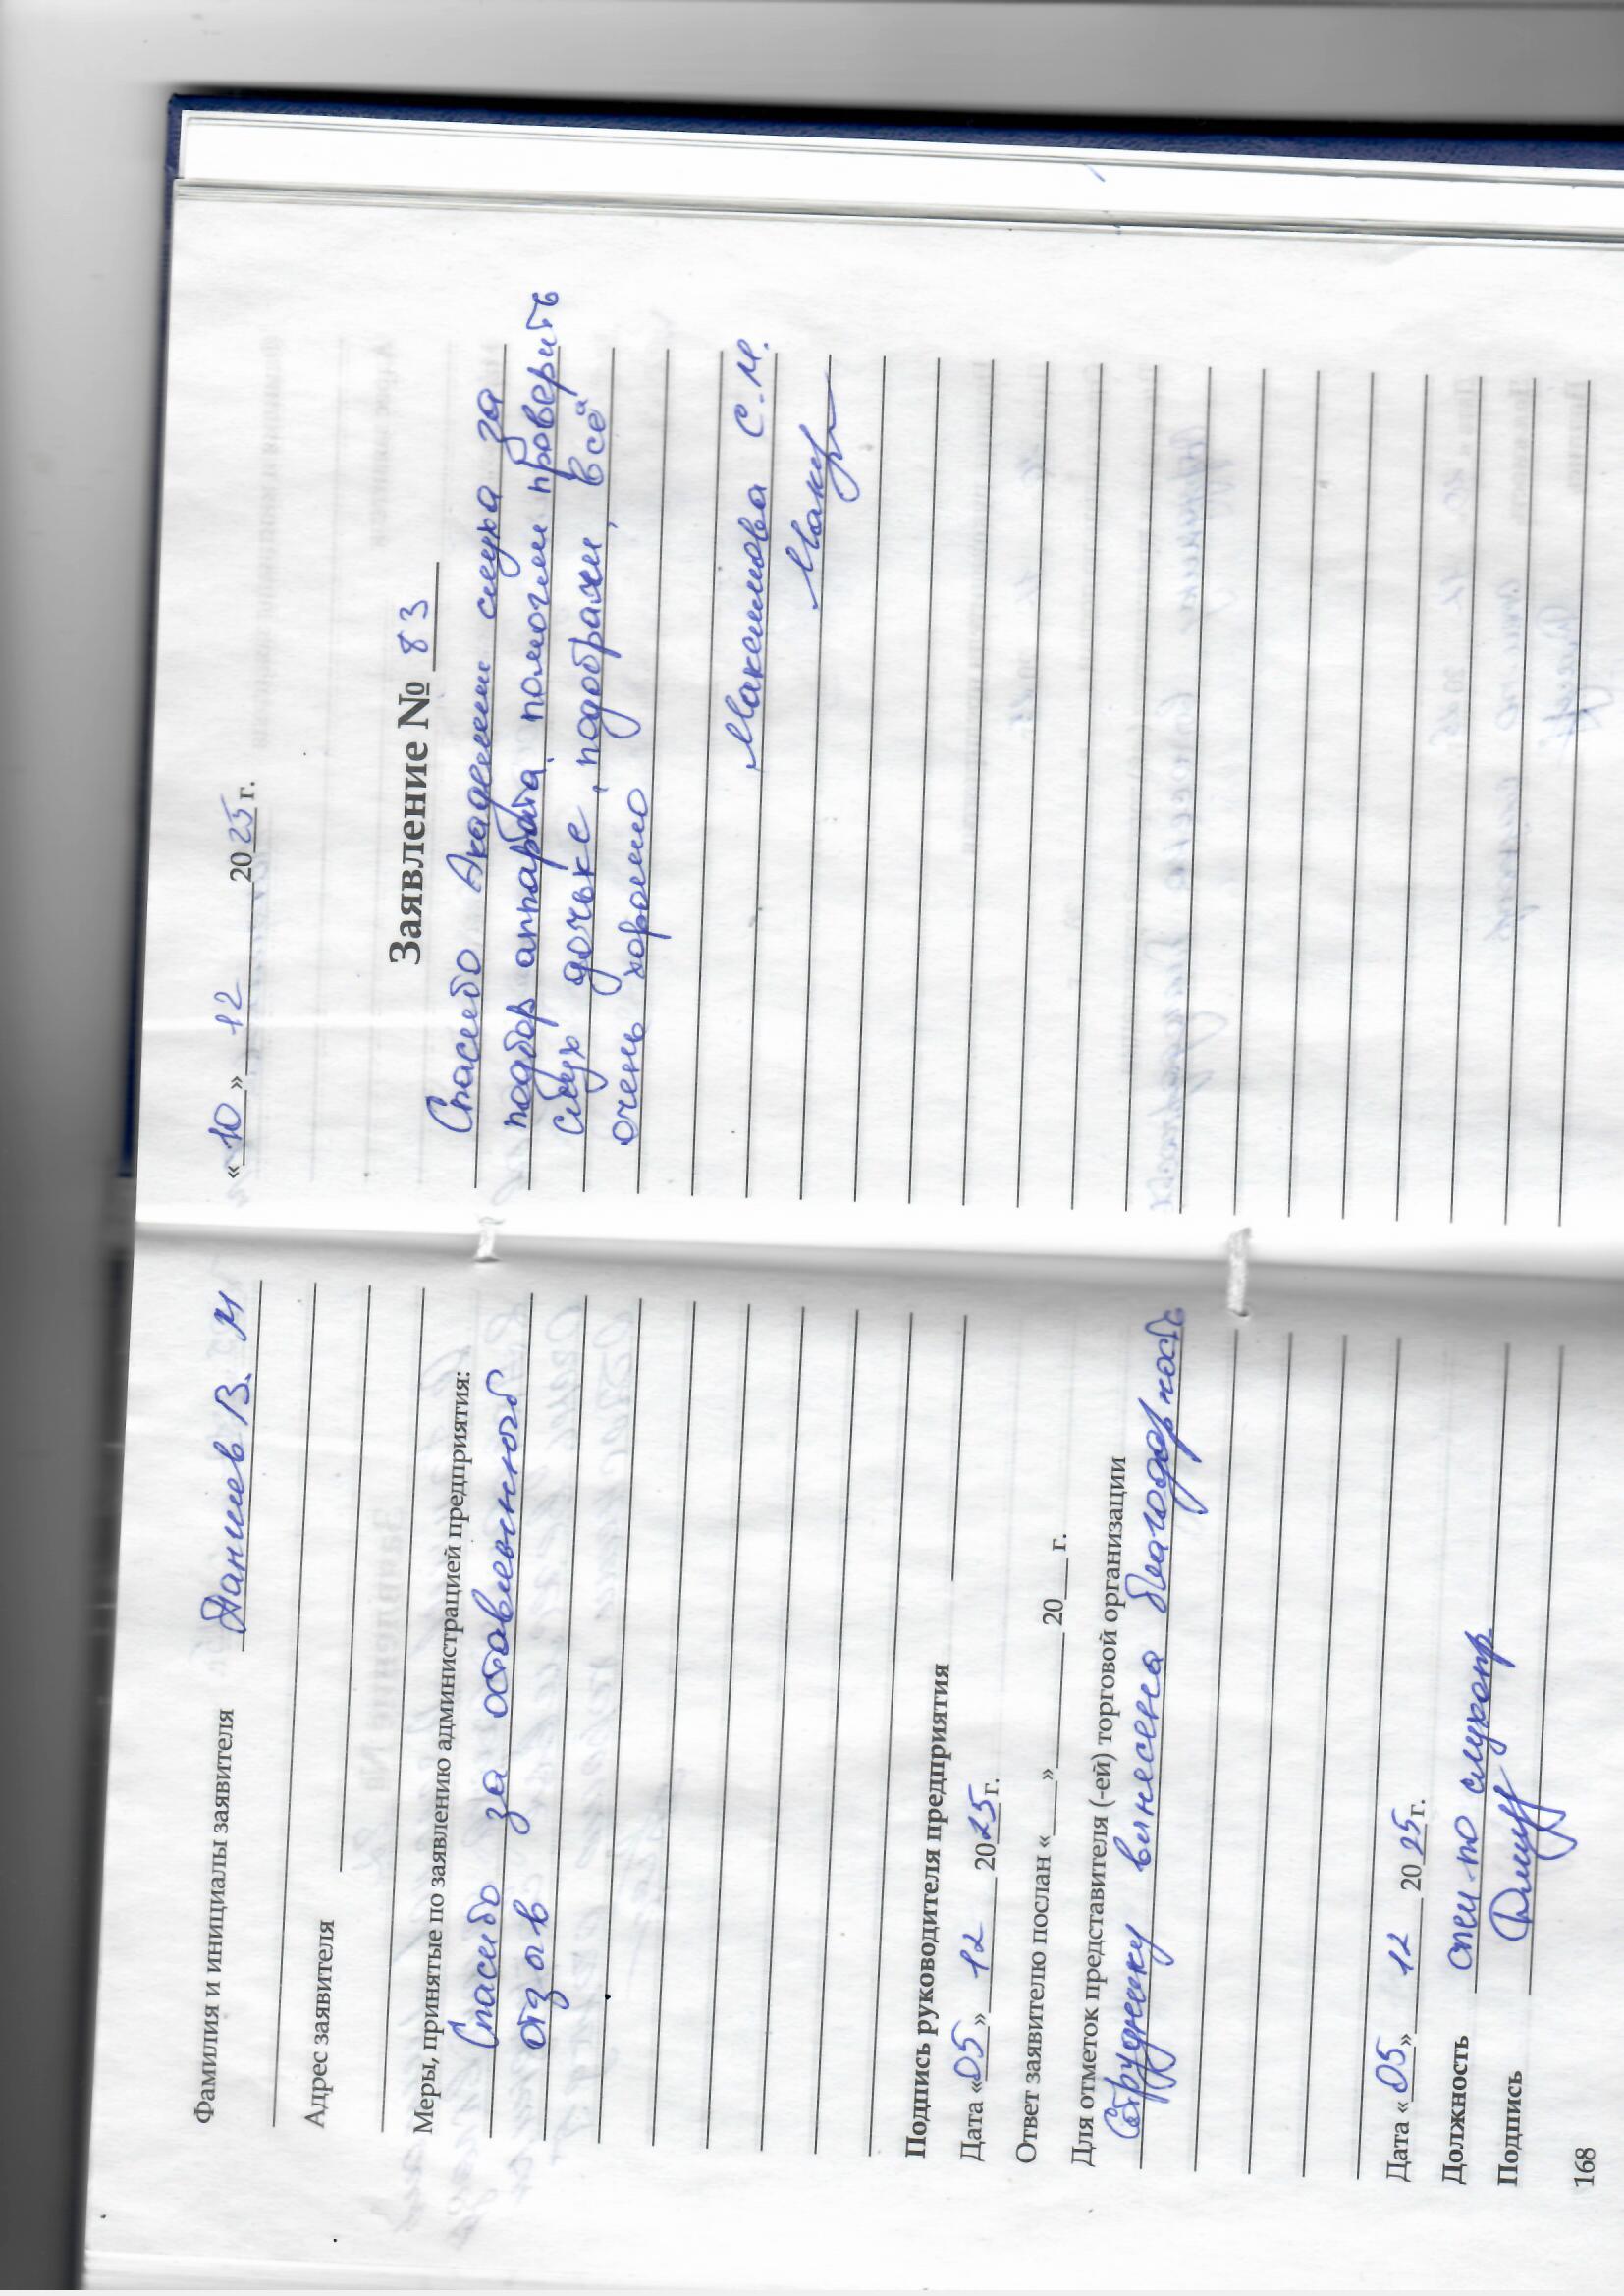 Фамилия и инициалы заявителя Даниев В. М
Адрес заявителя
Меры, принятые по заявлению администрацией предприятия:
Спасибо за оставленной
отзыв
Подпись руководителя предприятия
Дата «05» 12 2025г.
Ответ заявителю послан « » 20 г.
Для отметок представителя (-ей) торговой организации
Сотруднику вынесена благодарность
Дата «05» 12 2025г.
Должность спец-по слухопр
Подпись
168
«10» 12 2025г.
Заявление № 83
Спасибо Академии слуха за
подбор аппарата, помогли проверить
слух дочьке, подобрали, всё
очень хорошо
Максимова С.М.